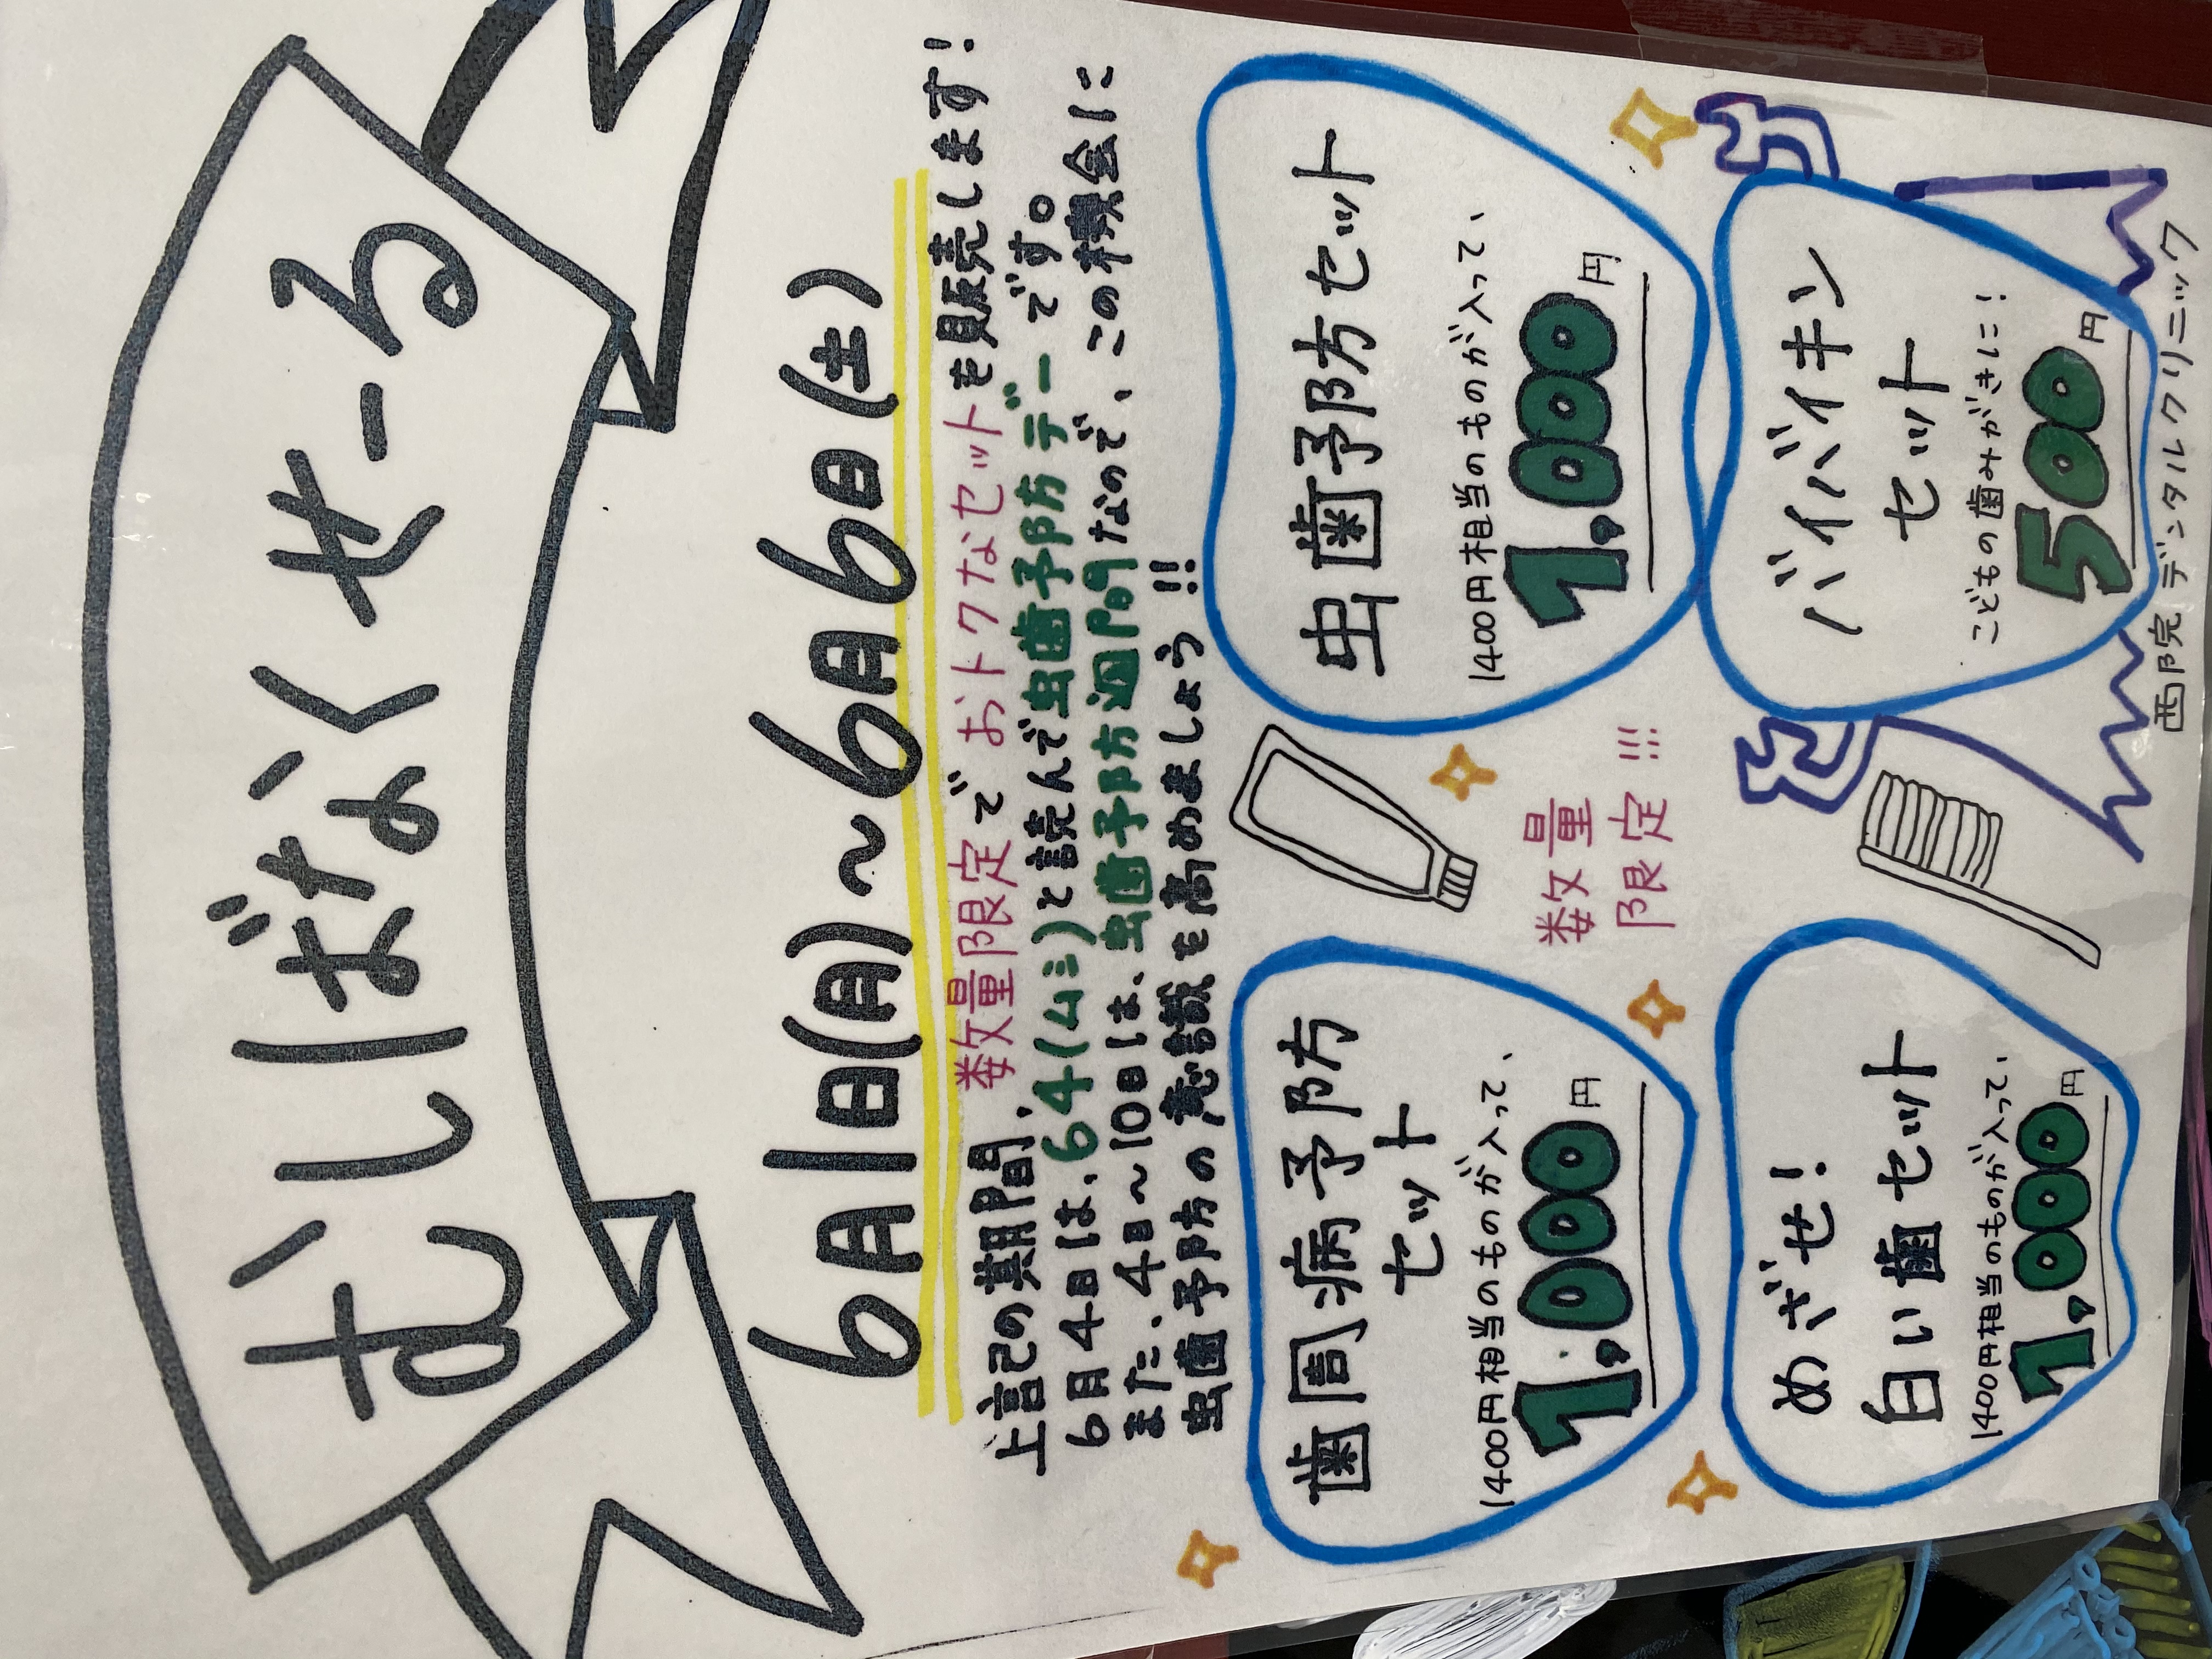 むしばなくせーる
6月1日(月)～6月6日(土)
上記の期間、数量限定でおトクなセットを販売します!
6月4日は、64(ムシ)と読んで虫歯予防デーです。
また、4日～10日は、虫歯予防週間なので、この機会に
虫歯予防の意識を高めましょう!!
歯周病予防
セット
1400円相当のものが入って、
1,000円
虫歯予防セット
1400円相当のものが入って、
1,000円
数量
限定!!!
めざせ!
白い歯セット
1400円相当のものが入って、
1,000円
バイバイキン
セット
こどもの歯みがきに!
500円
西院デンタルクリニック